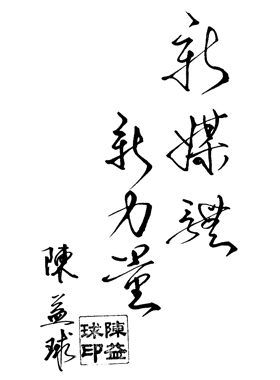 新媒體
新力量
陳益球
陳益
球印